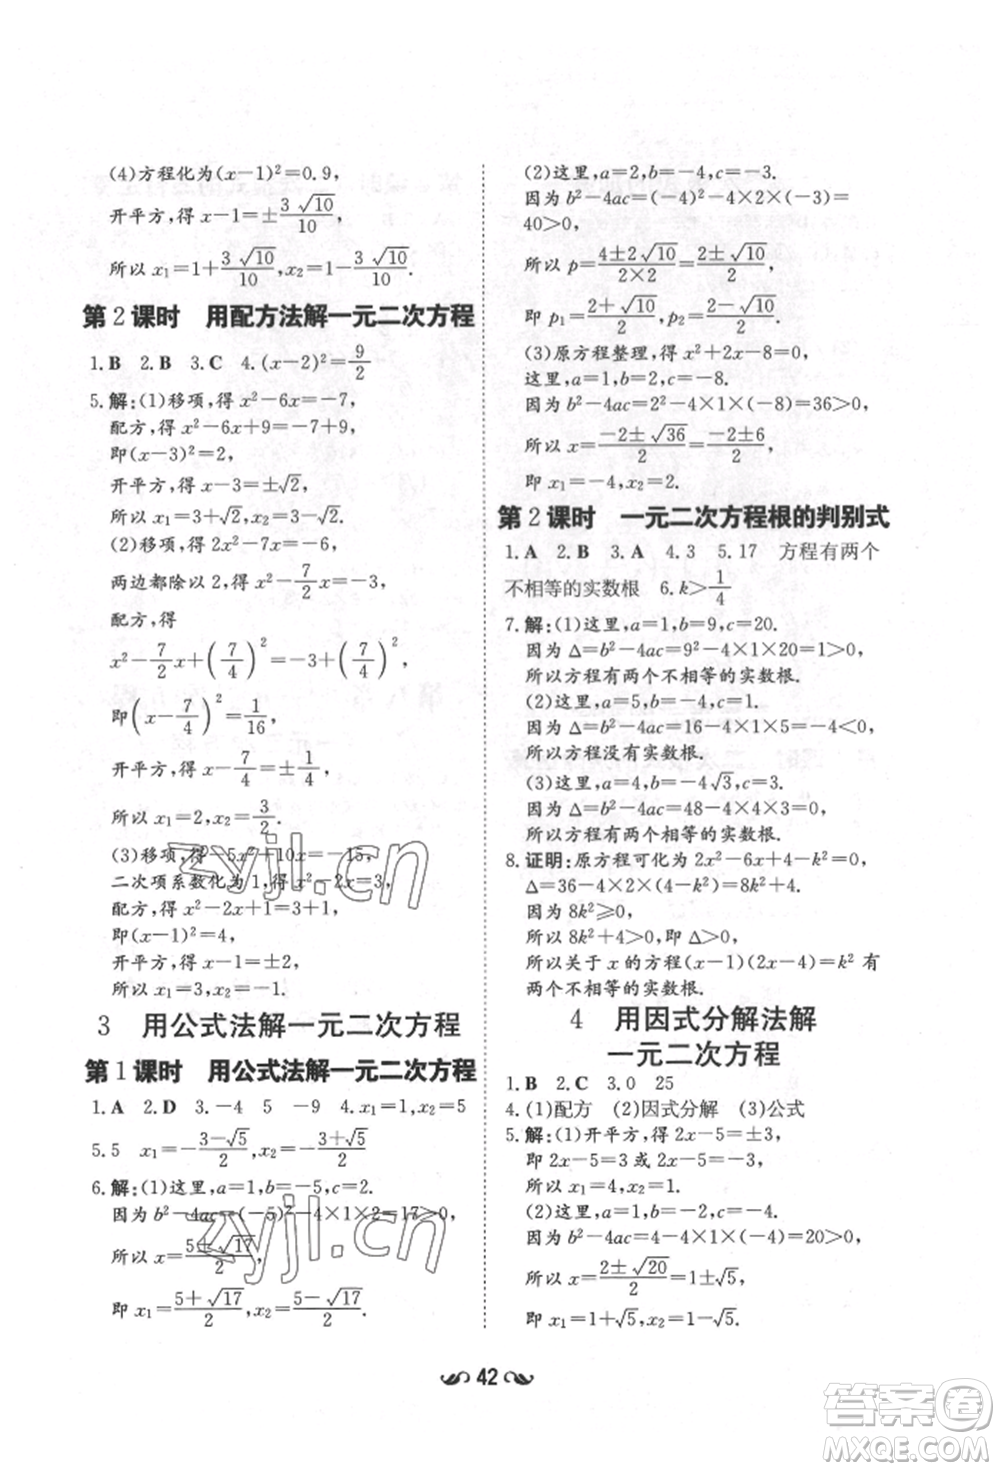 (4)方程化为(x−1)²=0.9,
开平方,得 x−1=±3√10/10,
所以 x₁=1+3√10/10,x₂=1−3√10/10.
第2课时 用配方法解一元二次方程
1.B 2.B 3.C 4.(x−2)²=9/2
5.解:(1)移项,得 x²−6x=−7,
配方,得 x²−6x+9=−7+9,
即(x−3)²=2,
开平方,得 x−3=±√2,
所以 x₁=3+√2,x₂=3−√2.
(2)移项,得 2x²−7x=−6,
两边都除以2,得 x²−7/2x=−3,
配方,得
x²−7/2x+(7/4)²=−3+(7/4)²,
即(x−7/4)²=1/16,
开平方,得 x−7/4=±1/4,
所以 x₁=2,x₂=3/2.
(3)移项,得−5x²+10x=−15,
二次项系数化为1,得 x²−2x=3,
配方,得 x²−2x+1=3+1,
即(x−1)²=4,
开平方,得 x−1=±2,
所以 x₁=3,x₂=−1.
3 用公式法解一元二次方程
第1课时 用公式法解一元二次方程
1.A 2.D 3.−4 5 −9 4.x₁=1,x₂=5
5.5 x₁=−(3−√5)/2,x₂=−(3+√5)/2
6.解:(1)这里,a=1,b=−5,c=2.
因为 b²−4ac=(−5)²−4×1×2=17>0,
所以 x=(5±√17)/2,
即 x₁=(5+√17)/2,x₂=(5−√17)/2.
(2)这里,a=2,b=−4,c=−3.
因为 b²−4ac=(−4)²−4×2×(−3)=
40>0,
所以 p=(4±2√10)/(2×2)=(2±√10)/2,
即 p₁=(2+√10)/2,p₂=(2−√10)/2.
(3)原方程整理,得 x²+2x−8=0,
这里,a=1,b=2,c=−8.
因为 b²−4ac=2²−4×1×(−8)=36>0,
所以 x=(−2±√36)/2=(−2±6)/2,
即 x₁=−4,x₂=2.
第2课时 一元二次方程根的判别式
1.A 2.B 3.A 4.3 5.17 方程有两个
不相等的实数根 6.k>1/4
7.解:(1)这里,a=1,b=9,c=20.
因为 Δ=b²−4ac=9²−4×1×20=1>0,
所以方程有两个不相等的实数根.
(2)这里,a=5,b=−4,c=1.
因为 Δ=b²−4ac=16−4×1×5=−4<0,
所以方程没有实数根.
(3)这里,a=4,b=−4√3,c=3.
因为 Δ=b²−4ac=48−4×4×3=0,
所以方程有两个相等的实数根.
8.证明:原方程可化为 2x²−6x+4−k²=0,
Δ=36−4×2×(4−k²)=8k²+4.
因为 8k²≥0,
所以 8k²+4>0,即 Δ>0,
所以关于 x 的方程(x−1)(2x−4)=k² 有
两个不相等的实数根.
4 用因式分解法解
一元二次方程
1.B 2.C 3.0 25
4.(1)配方 (2)因式分解 (3)公式
5.解:(1)开平方,得 2x−5=±3,
即 2x−5=3或 2x−5=−3,
所以 x₁=4,x₂=1.
(2)这里,a=1,b=−2,c=−4.
因为 b²−4ac=4−4×1×(−4)=20>0,
所以 x=(2±√20)/2=1±√5,
即 x₁=1+√5,x₂=1−√5.
42
zyjl.cn
zyjl.cn
答案圈
MXQE.COM